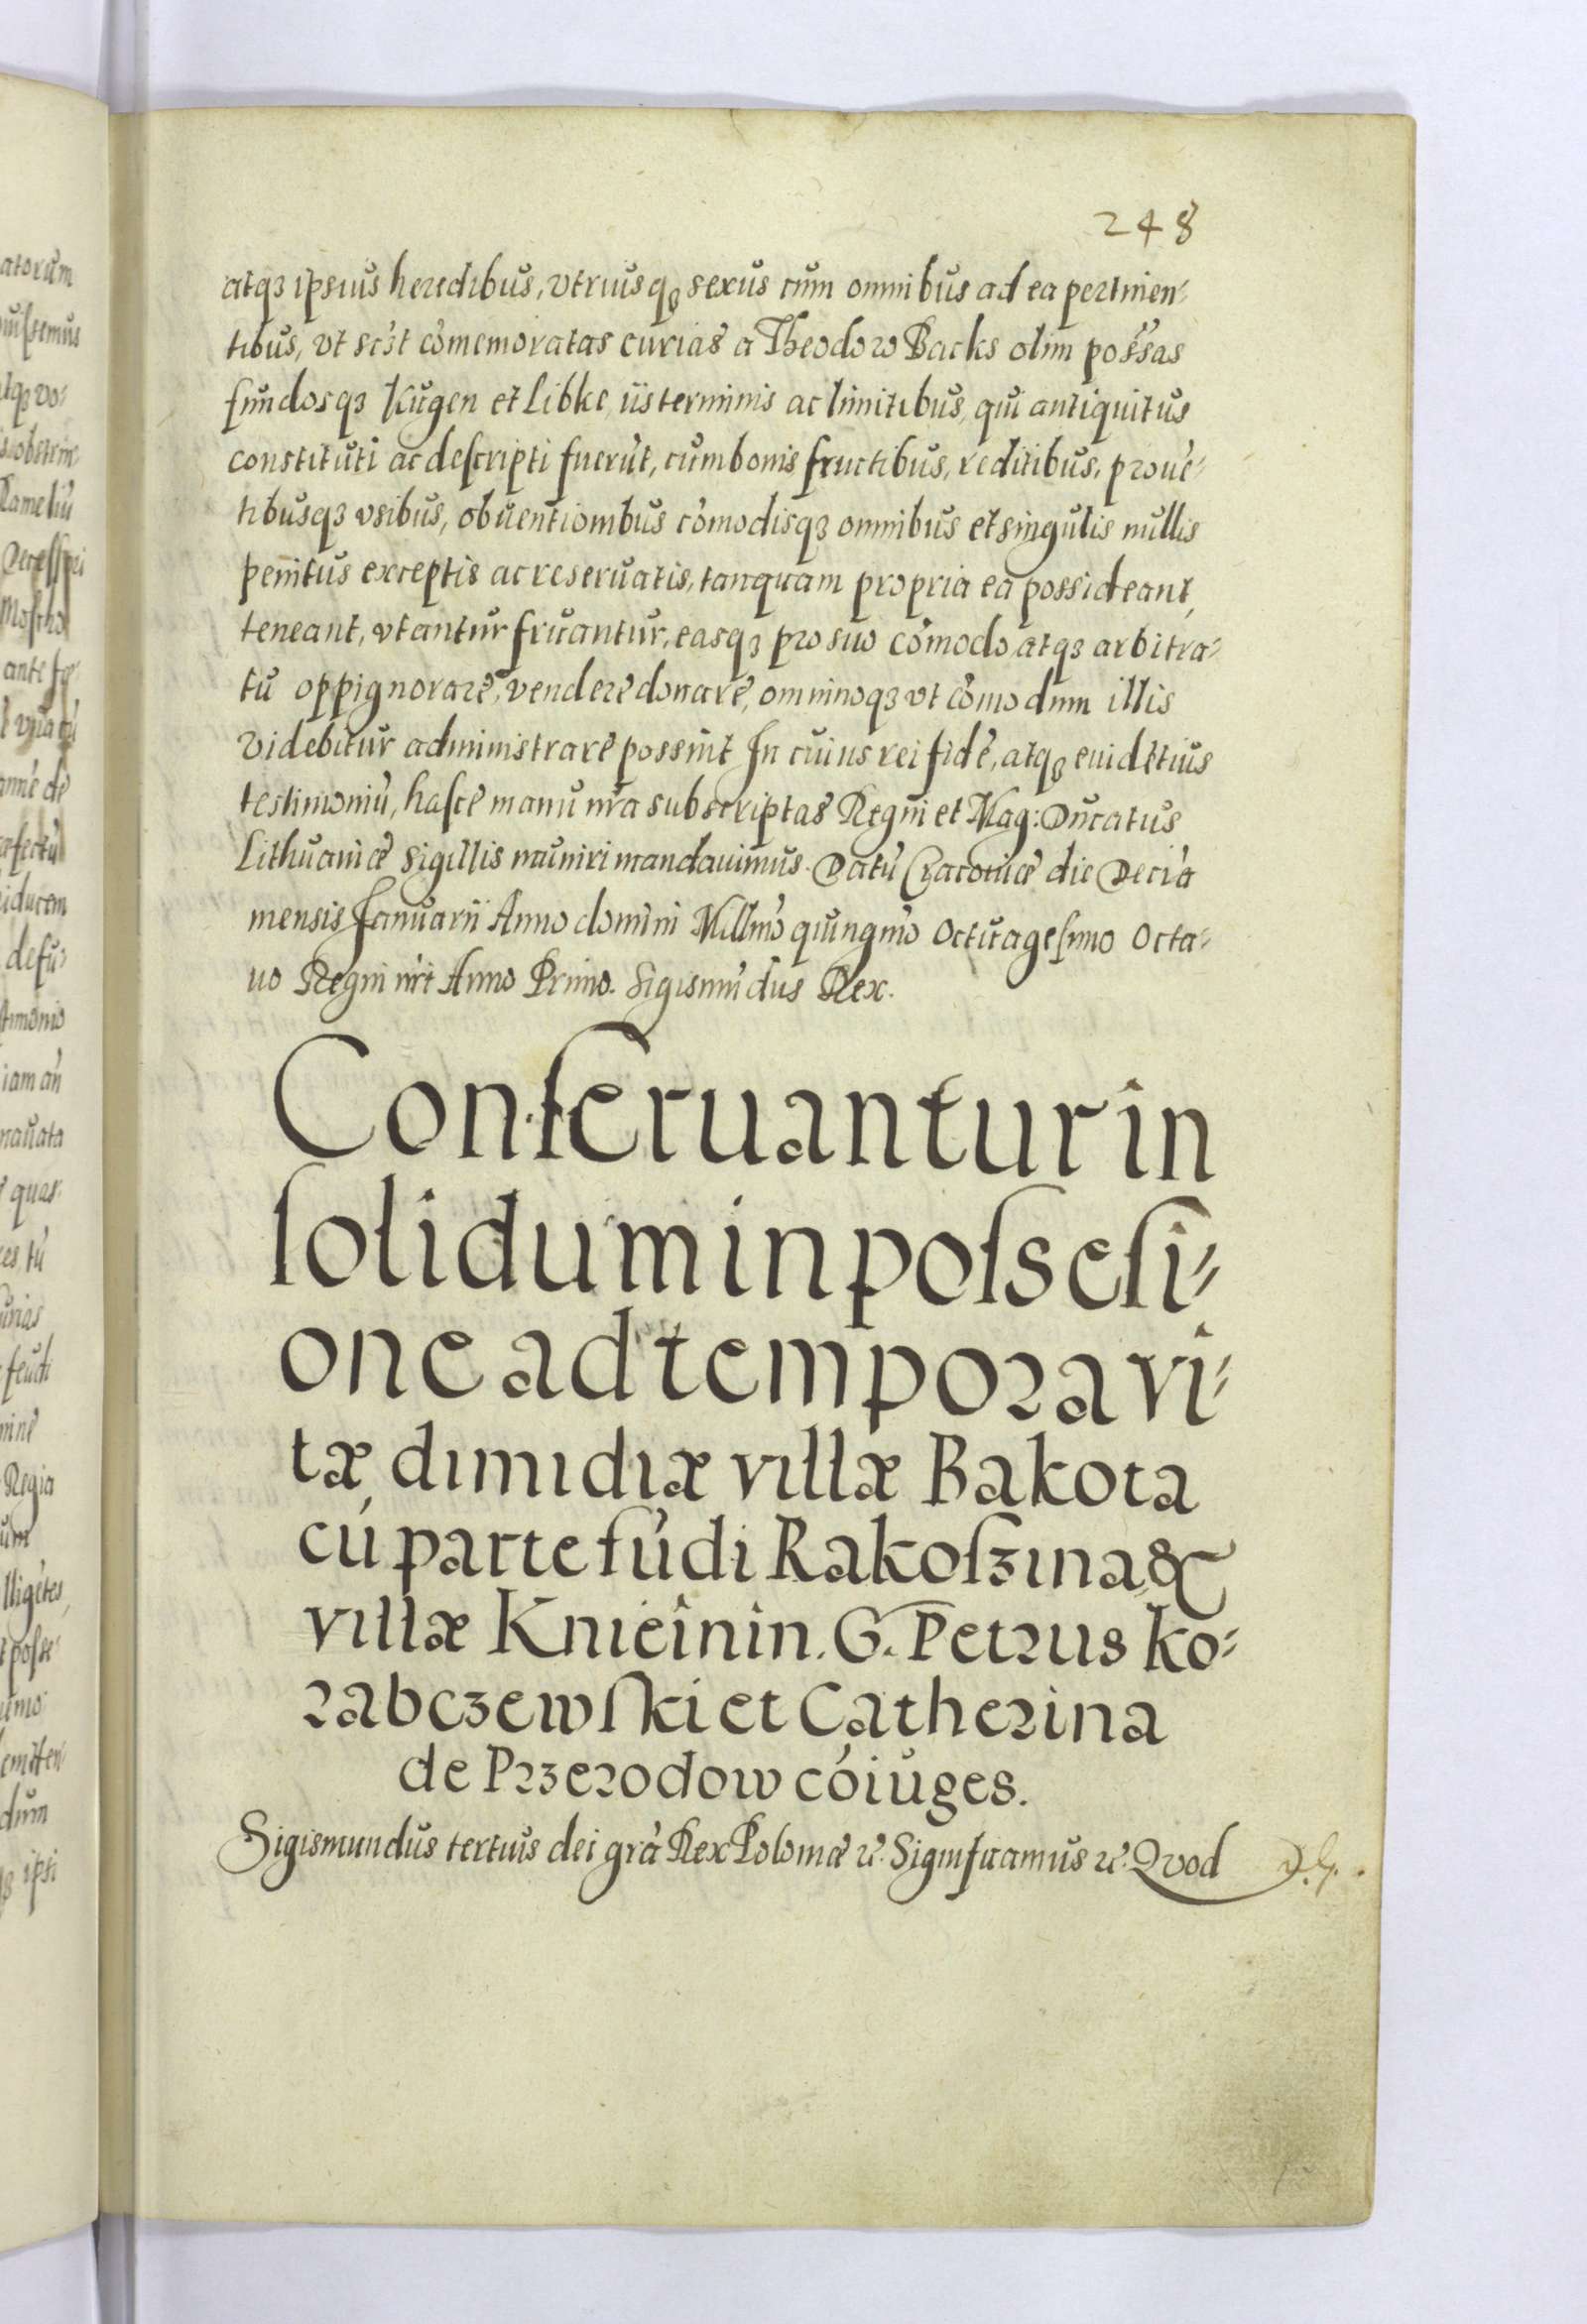 248
atqꝫ ipsius heredibus, vtriusqꝫ sexus cum omnibus ad ea pertinen⸗
tibus, vt scꝫt cōmemoratas curias a Theodoro Backs olim possas
fundosqꝫ Kugen et Libke iis terminis ac limitibus, qui antiquitus
constituti ac descripti fuerūt, cum bonis fructibus, reditibus, prouē⸗
tibusqꝫ vsibus, obuentionibus cōmodisqꝫ omnibus et singulis nullis
penitus exceptis ac reseruatis, tanquam propria ea possideant,
teneant, vtantur fruantur, easqꝫ pro suo cōmodo atqꝫ arbitra⸗
tu oppignorare, vendere donare, omninoqꝫ vt cōmodum illis
videbitur administrare possint In cuius rei fidē, atqꝫ euidētius
testimoniū, hasce manu nr̄a subscriptas Regni et Mag: Ducatus
Lithuaniæ sigillis muniri mandauimus. Datū Cracouiæ die Deciā
mensis Januarii Anno domini Millmō quingmō Octuagesimo Octa⸗
uo Regni nr̄i Anno Primo. Sigismūdus Rex.
Conseruantur in
solidum in possesi⸗
one ad tempora vi⸗
tæ dimidiæ villæ Bakota
cū parte fūdi Rakoſzina &
villæ Knieinin. G. Petrus Ko⸗
rabczewſki et Catherina
de Przerodow cōiuges.
Sigismundus tertius dei grā Rex Poloniæ ꝛc. Significamus ꝛc. Quod